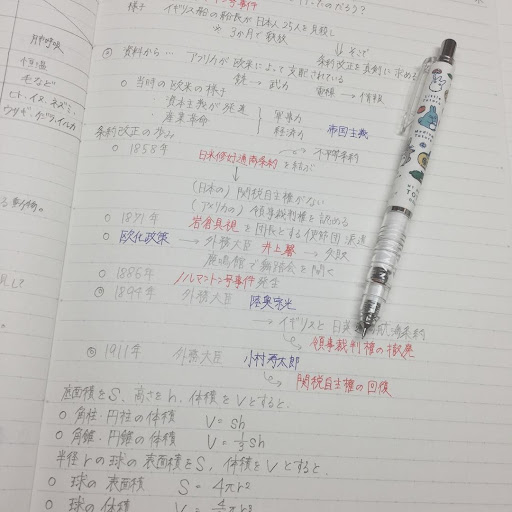 号事件
様子 イギリス船の船長が日本人25人を見殺し
3か月で釈放
資料から… アフリカが欧米によって支配されている
条約改正を真剣に求める
銃 → 武力
電線 → 情報
○ 当時の欧米の様子
・資本主義が発達
・産業革命
軍事力
経済力
帝国主義
条約改正の歩み
不平等条約
○ 1858年 日米修好通商条約を結ぶ
↓
(日本の) 関税自主権がない
(アメリカの) 領事裁判権を認める
○ 1871年 岩倉具視を団長とする使節団派遣
○ 欧化政策 → 外務大臣 井上馨 → 失敗
鹿鳴館で舞踏会を開く
○ 1886年 ノルマントン号事件発生
○ 1894年 外務大臣 陸奥宗光
→ イギリスと日英 通商条約
領事裁判権の撤廃
○ 1911年 外務大臣 小村寿太郎
関税自主権の回復
底面積をS、高さをh、体積をVとすると、
○ 角柱・円柱の体積 V = Sh
○ 角錐・円錐の体積 V = 1/3 Sh
半径rの球の表面積をS、体積をVとすると、
○ 球の表面積 S = 4πr²
○ 球の体積 V = 4/3 πr³
肺呼吸
恒温
毛など
ヒト、イヌ、ネズミ、
ウサギ、クジラ、イルカ